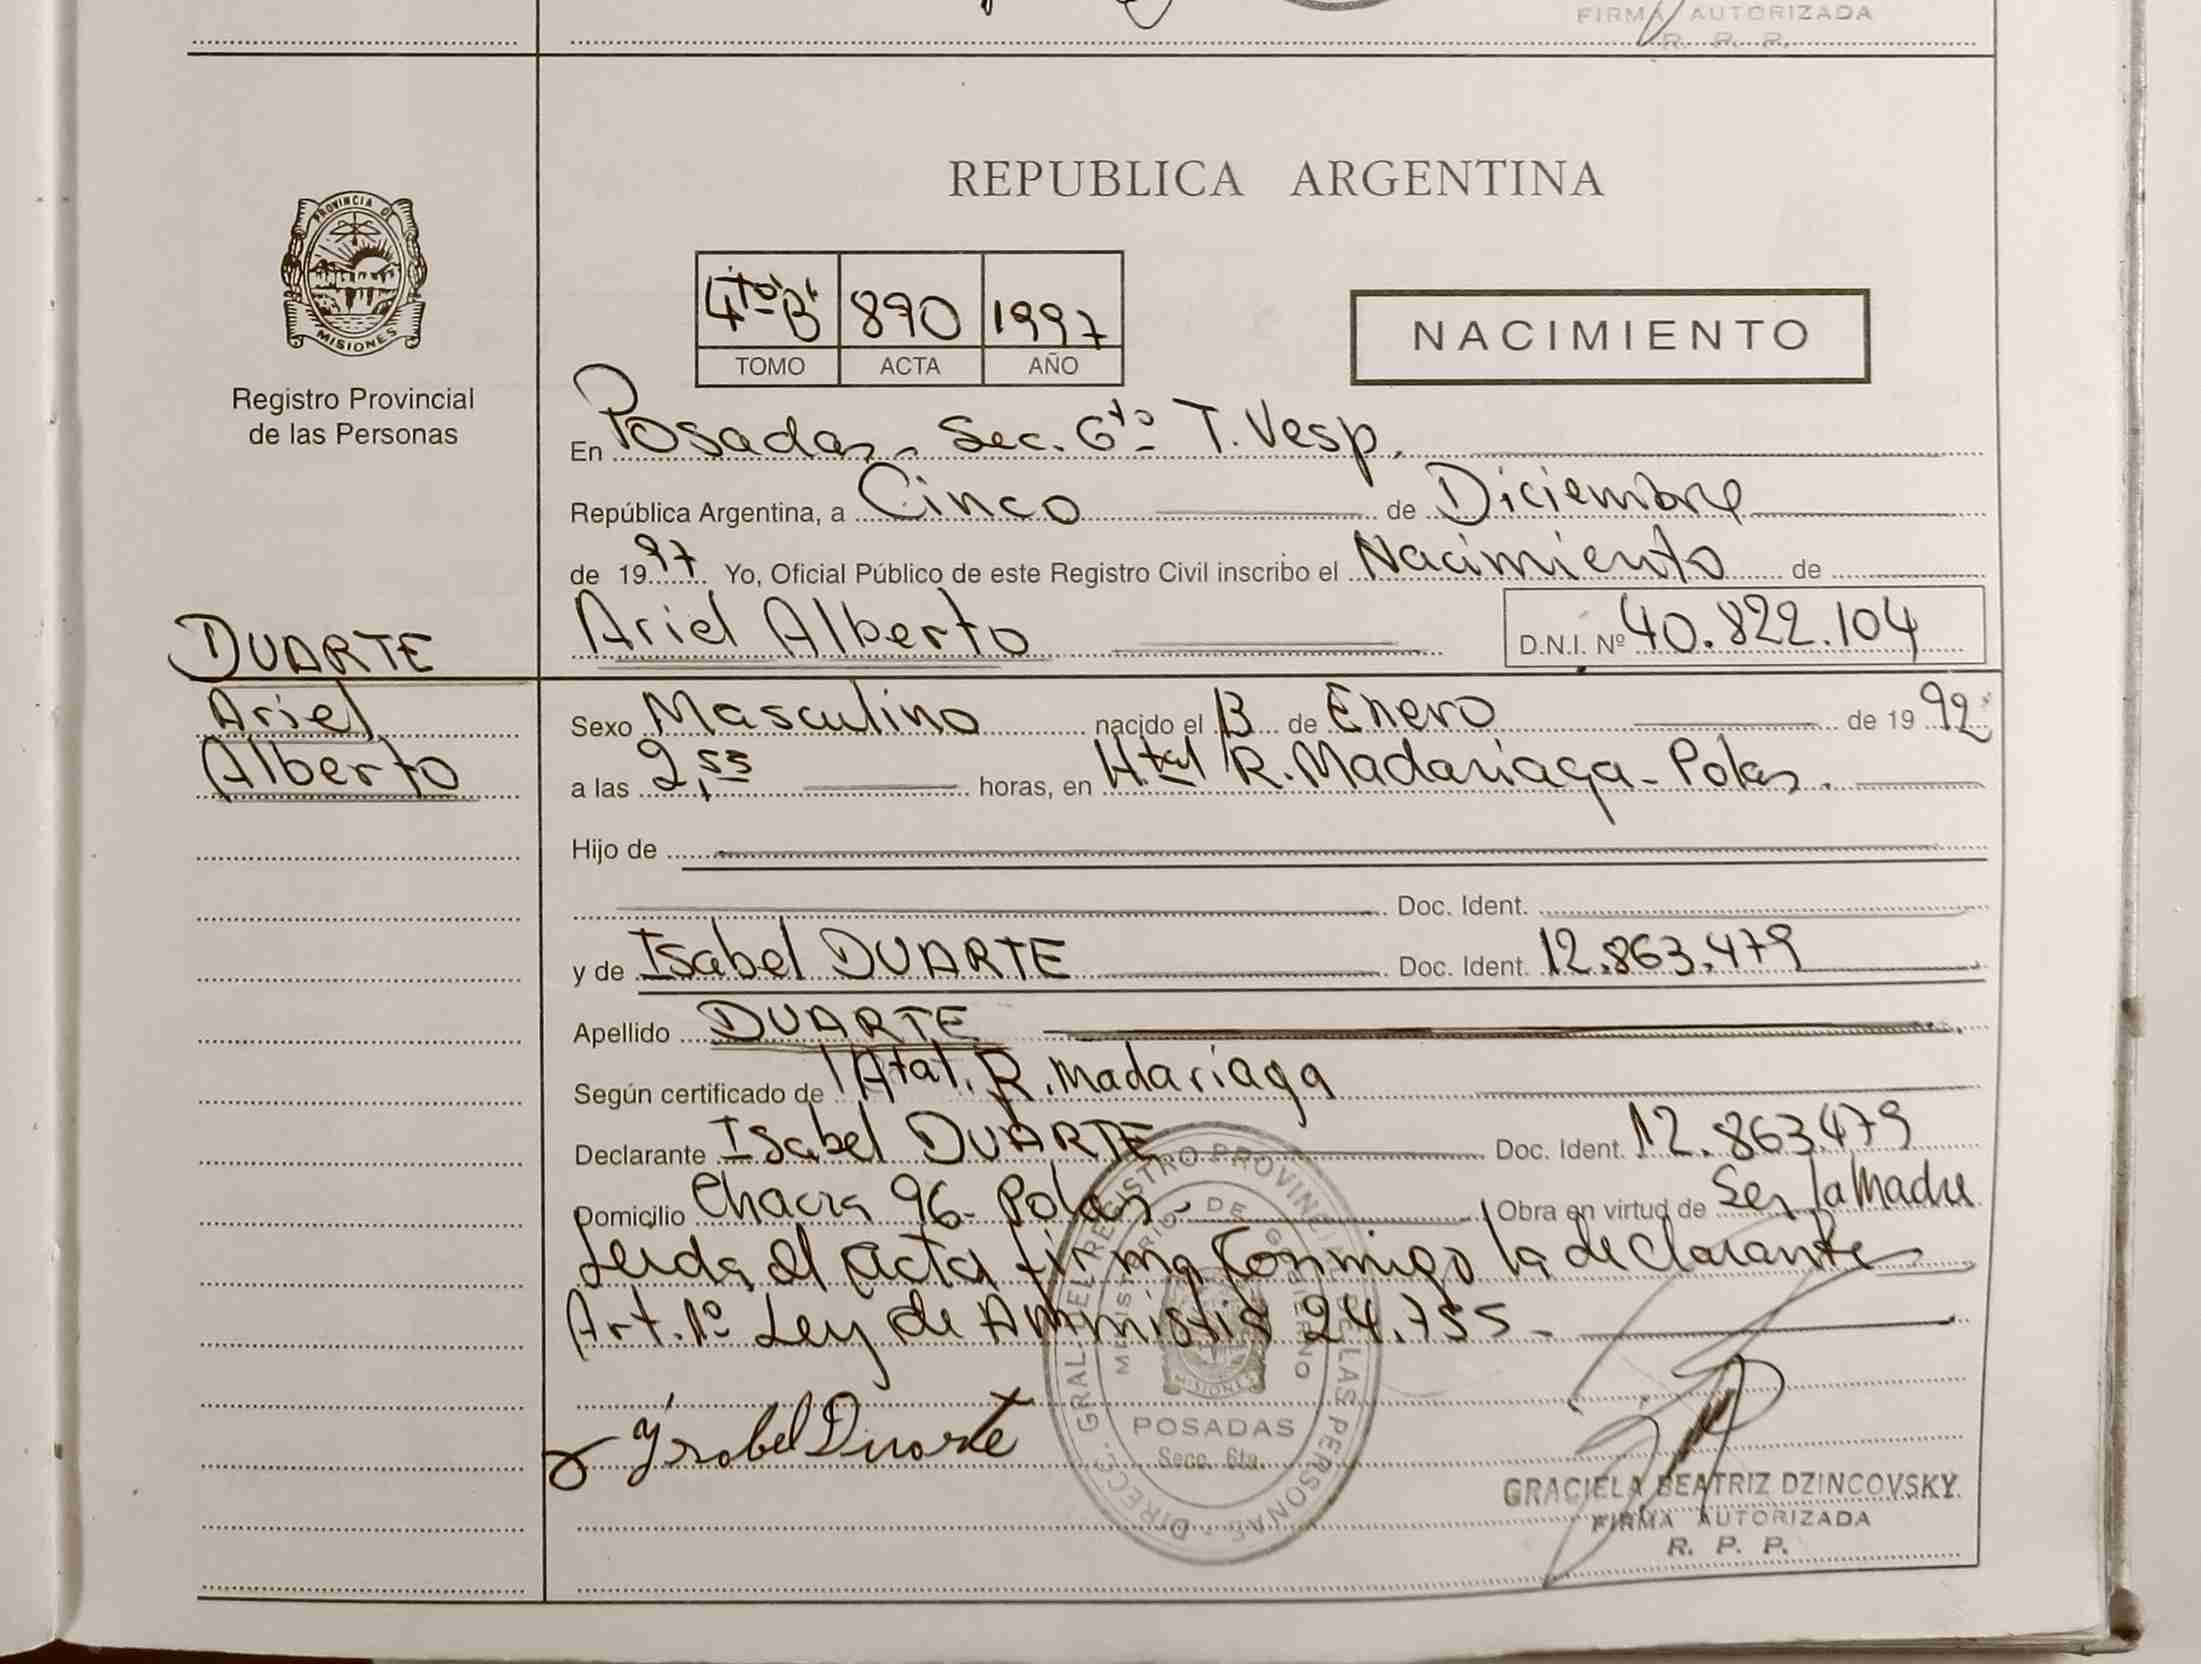 FIRMA AUTORIZADA
R. P. P.
PROVINCIA DE
MISIONES
Registro Provincial
de las Personas
REPUBLICA ARGENTINA
4to B 890 1997
TOMO ACTA AÑO
NACIMIENTO
En Posadas, Sec. 6to T. Vesp.
República Argentina, a Cinco de Diciembre
de 1997 Yo, Oficial Público de este Registro Civil inscribo el Nacimiento de
Ariel Alberto D.N.I. Nº 40.822.104
DUARTE
Ariel
Alberto
Sexo Masculino nacido el 13 de Enero de 1992
a las 2,55 horas, en Htal R. Madariaga - Pdas.
Hijo de
Doc. Ident.
y de Isabel DUARTE Doc. Ident. 12.863.479
Apellido DUARTE
Según certificado de Htal. R. Madariaga
Declarante Isabel DUARTE Doc. Ident. 12.863.479
Domicilio Chacra 96 - Pdas. - Obra en virtud de Ser la Madre
Leida el acta firma conmigo la declarante
Art. 1º Ley de Ammistia 24.755 -
Ysabel Duarte
DIREC. GRAL. DEL REGISTRO PROVINCIAL DE LAS PERSONAS
MINISTERIO DE GOBIERNO
MISIONES
POSADAS
Secc. 6ta.
GRACIELA BEATRIZ DZINCOVSKY
FIRMA AUTORIZADA
R. P. P.